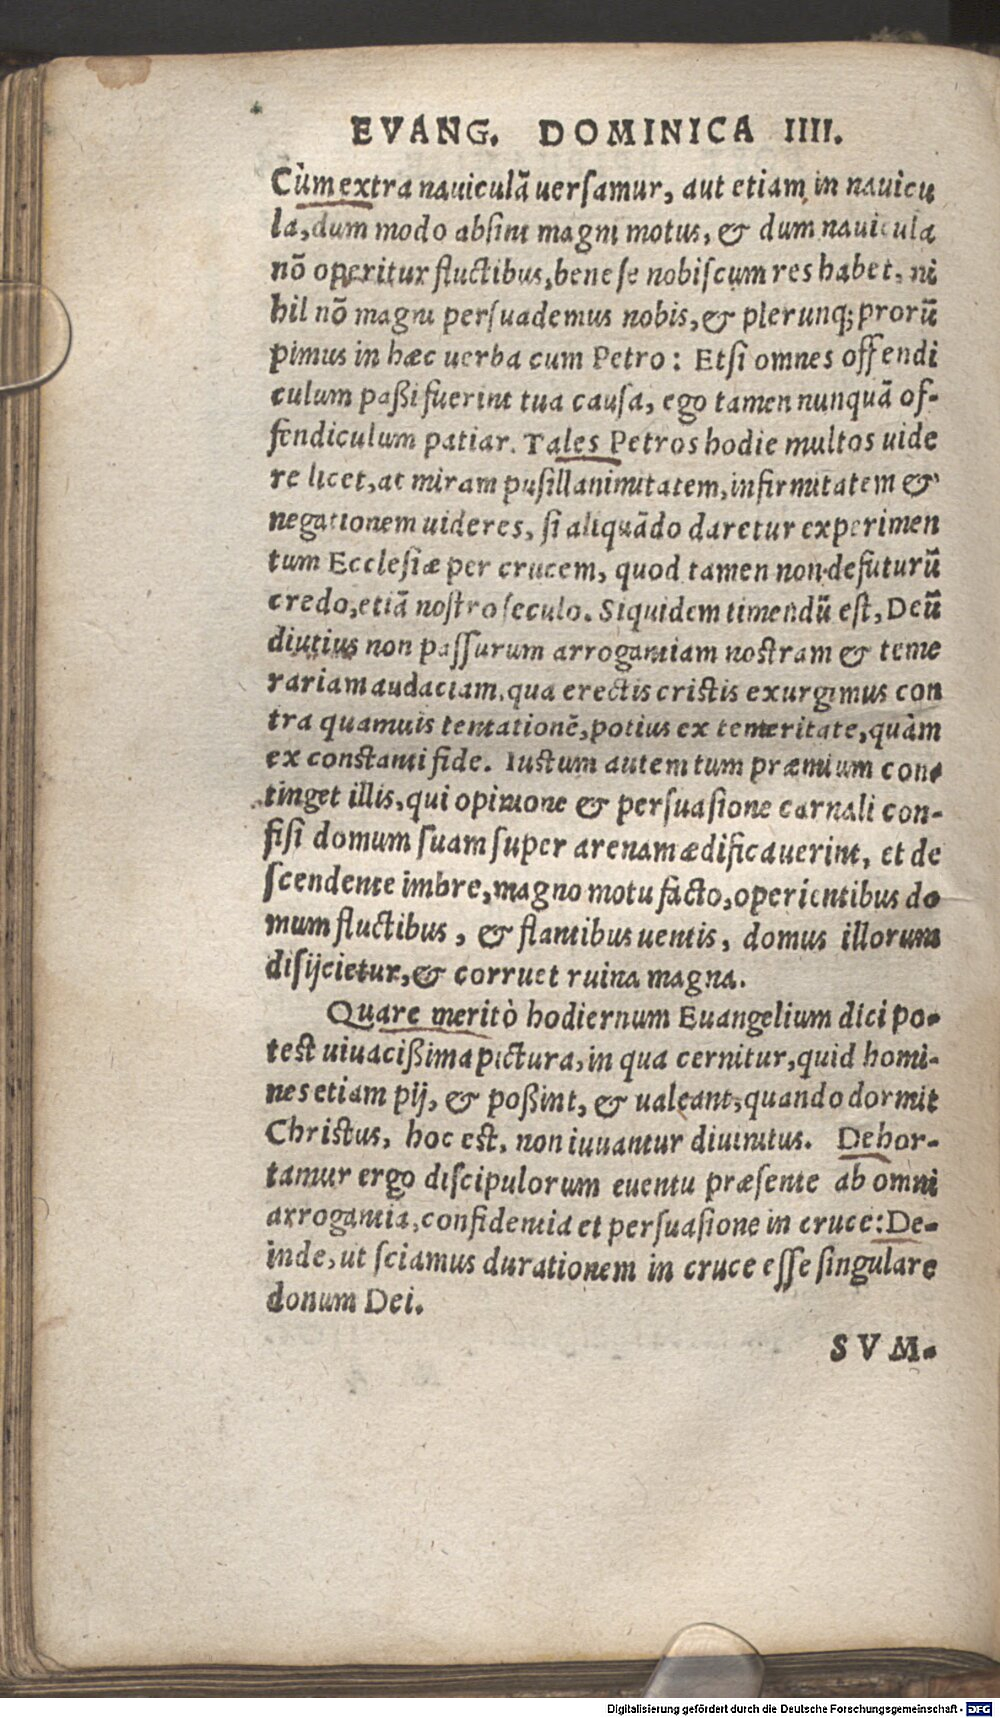 EVANG. DOMINICA IIII.
Cùm extra nauiculã uersamur, aut etiam in nauicu
la, dum modo absint magni motus, & dum nauicula
nõ operitur fluctibus, bene se nobiscum res habet, ni
hil nõ magni persuademus nobis, & plerunq; prorũ
pimus in hæc uerba cum Petro: Etsi omnes offendi
culum paßi fuerint tua causa, ego tamen nunquã of-
fendiculum patiar. Tales Petros hodie multos uide
re licet, at miram pusillanimitatem, infirmitatem &
negationem uideres, si aliquãdo daretur experimen
tum Ecclesiæ per crucem, quod tamen non defuturũ
credo, etiã nostro seculo. Siquidem timendũ est, Deũ
diutius non passurum arrogantiam nostram & teme
rariam audaciam, qua erectis cristis exurgimus con
tra quamuis tentationẽ, potius ex temeritate, quàm
ex constanti fide. Iustum autem tum præmium con-
tinget illis, qui opinione & persuasione carnali con-
fisi domum suam super arenam ædificauerint, et de
scendente imbre, magno motu facto, operientibus do
mum fluctibus, & flantibus uentis, domus illorum
disijcietur, & corruet ruina magna.
Quare meritò hodiernum Euangelium dici po-
test uiuacißima pictura, in qua cernitur, quid homi-
nes etiam pij, & poßint, & ualeant, quando dormit
Christus, hoc est, non iuuantur diuinitus. Dehor-
tamur ergo discipulorum euentu præsente ab omni
arrogantia, confidentia et persuasione in cruce: De-
inde, ut sciamus durationem in cruce esse singulare
donum Dei.
SVM-
Digitalisierung gefördert durch die Deutsche Forschungsgemeinschaft - DFG